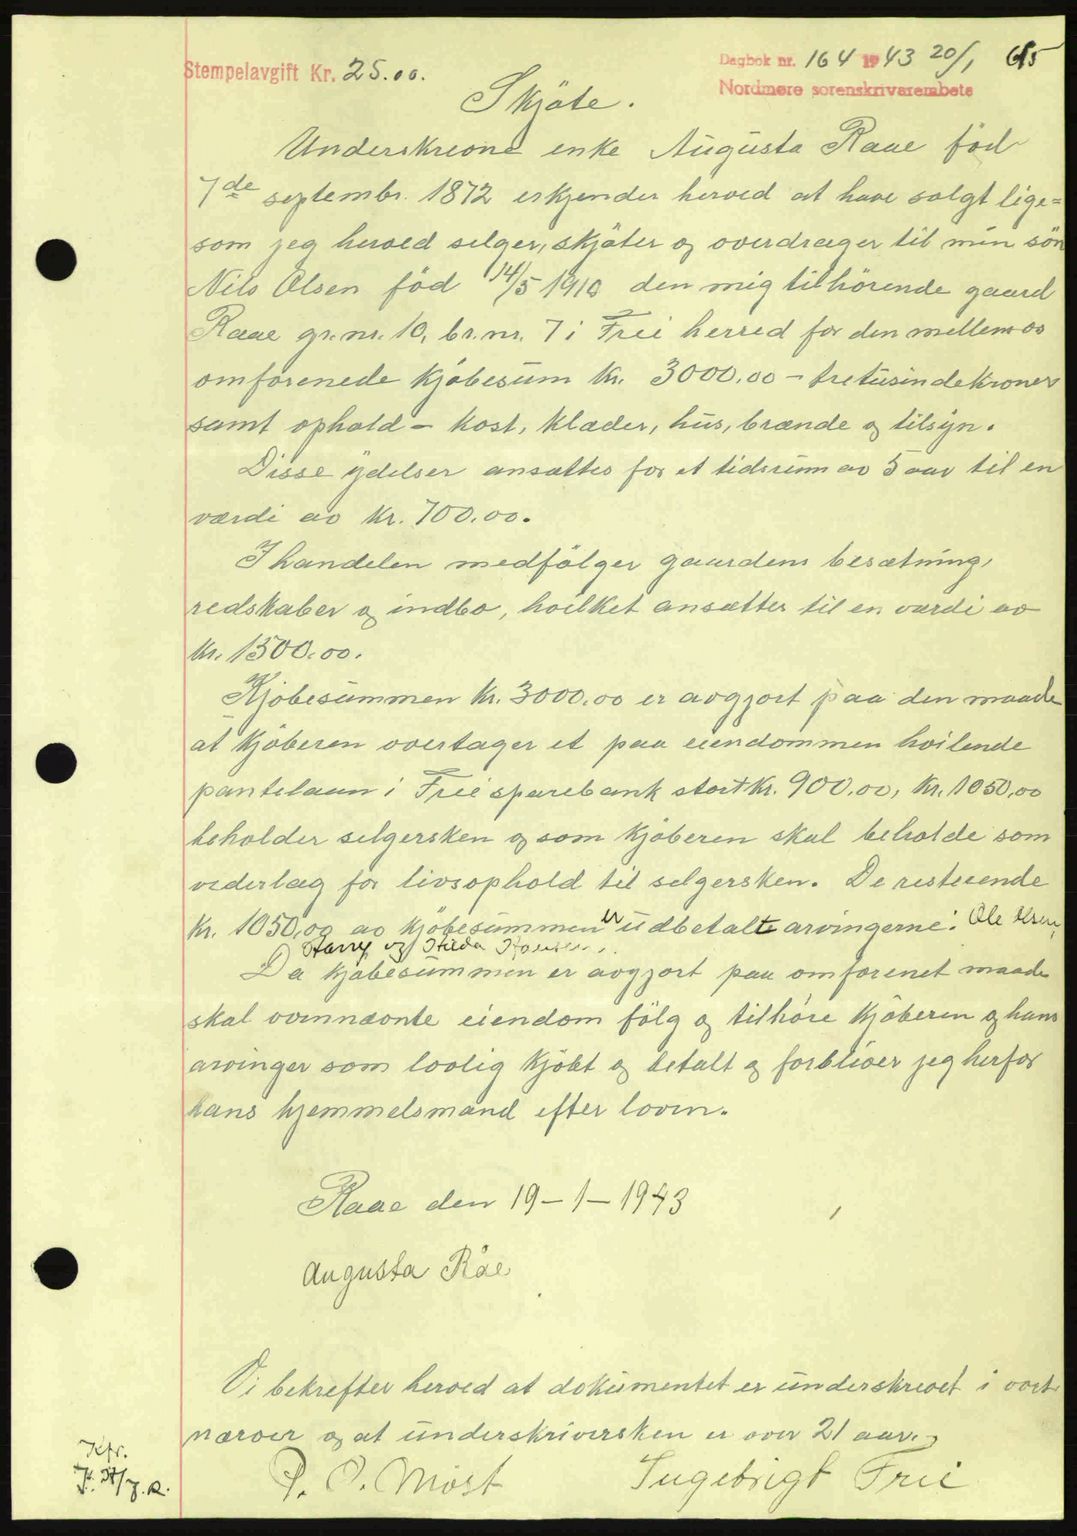 Stempelavgift Kr. 25.00.
Dagbok nr. 164 1943 20/1 615
Nordmøre sorenskriverembete
Skjöte.
Underskrevne enke Augusta Raae född
7de septembr. 1872 erkjender herved at have solgt lige=
som jeg herved selger, skjöter og overdrager til min sön
Nils Olsen född 14/5 1910 den mig tilhörende gaard
Raae gr.nr. 10, br.nr. 7 i Frei herred for den mellem os
omforenede kjöbesum kr. 3000.00 – tretusindekroner
samt ophold – kost, klæder, hus, brænde og tilsyn.
Disse ydelser ansættes for et tidsrum av 5 aar til en
værdi av kr. 700.00.
I handelen medfölger gaardens besætning,
redskaber og indbo, hvilket ansættes til en værdi av
kr. 1500.00.
Kjöbesummen kr. 3000.00 er avgjort paa den maade
at kjöberen overtager et paa eiendommen hvilende
pantelaan i Frei sparebank stort kr. 900.00, kr. 1050.00
beholder selgersken og som kjöberen skal beholde som
vederlag for livsophold til selgersken. De resterende
kr. 1050.00 av kjöbesummen er udbetalt arvingerne: Ole Olsen,
Harry og Hilda Hansen.
Da kjöbesummen er avgjort paa omforenet maade
skal ovennævnte eiendom fölg og tilhöre kjöberen og hans
arvinger som lovlig kjöbt og betalt og forbliver jeg herfor
hans hjemmelsmand efter loven.
Raae den 19–1–1943
Augusta Råe
Vi bekrefter herved at dokumentet er underskrevet i vort
nærver og at underskriversken er over 21 aar.
P. O. Møst Ingebrigt Frei
Kfr.